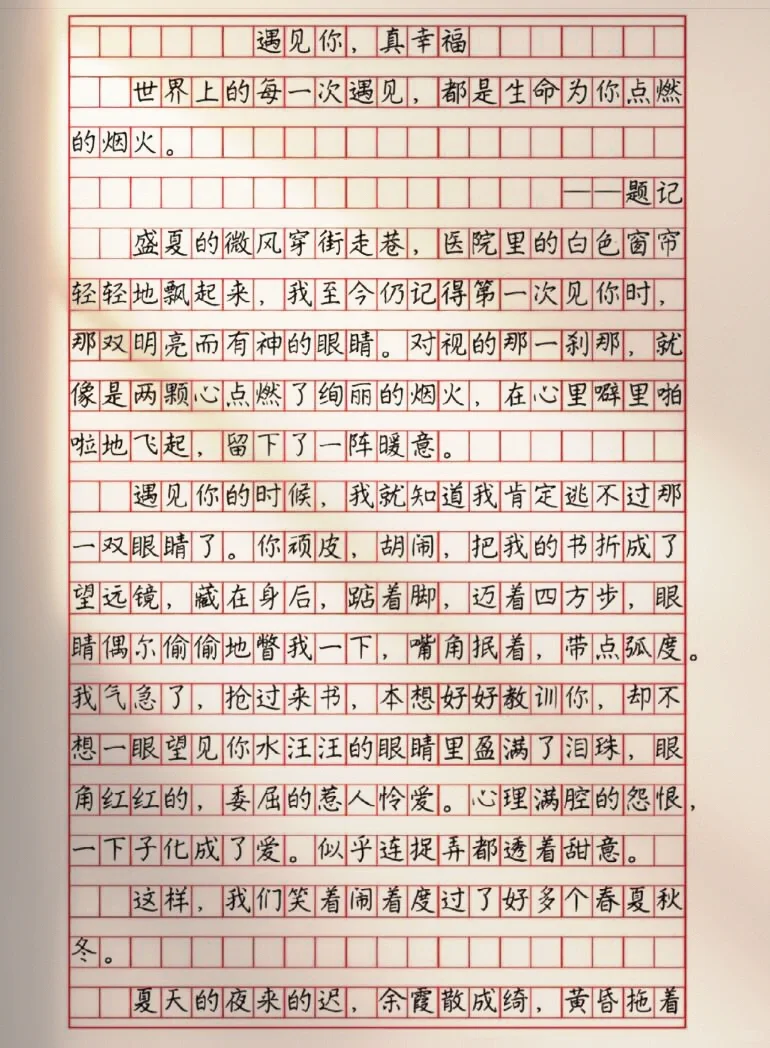 遇见你，真幸福
世界上的每一次遇见，都是生命为你点燃
的烟火。
——题记
盛夏的微风穿街走巷，医院里的白色窗帘
轻轻地飘起来，我至今仍记得第一次见你时，
那双明亮而有神的眼睛。对视的那一刹那，就
像是两颗心点燃了绚丽的烟火，在心里噼里啪
啦地飞起，留下了一阵暖意。
遇见你的时候，我就知道我肯定逃不过那
一双眼睛了。你顽皮，胡闹，把我的书折成了
望远镜，藏在身后，踮着脚，迈着四方步，眼
睛偶尔偷偷地瞥我一下，嘴角抿着，带点弧度。
我气急了，抢过来书，本想好好教训你，却不
想一眼望见你水汪汪的眼睛里盈满了泪珠，眼
角红红的，委屈的惹人怜爱。心理满腔的怨恨，
一下子化成了爱。似乎连捉弄都透着甜意。
这样，我们笑着闹着度过了好多个春夏秋
冬。
夏天的夜来的迟，余霞散成绮，黄昏拖着